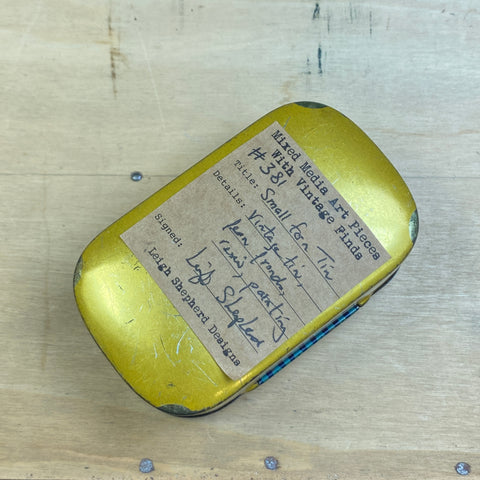 Mixed Media Art Pieces
With Vintage Finds
#381
Title: Small fern Tin
Details: Vintage tin,
fern fronds,
resin, painting
Signed: Leigh Shepherd
Leigh Shepherd Designs